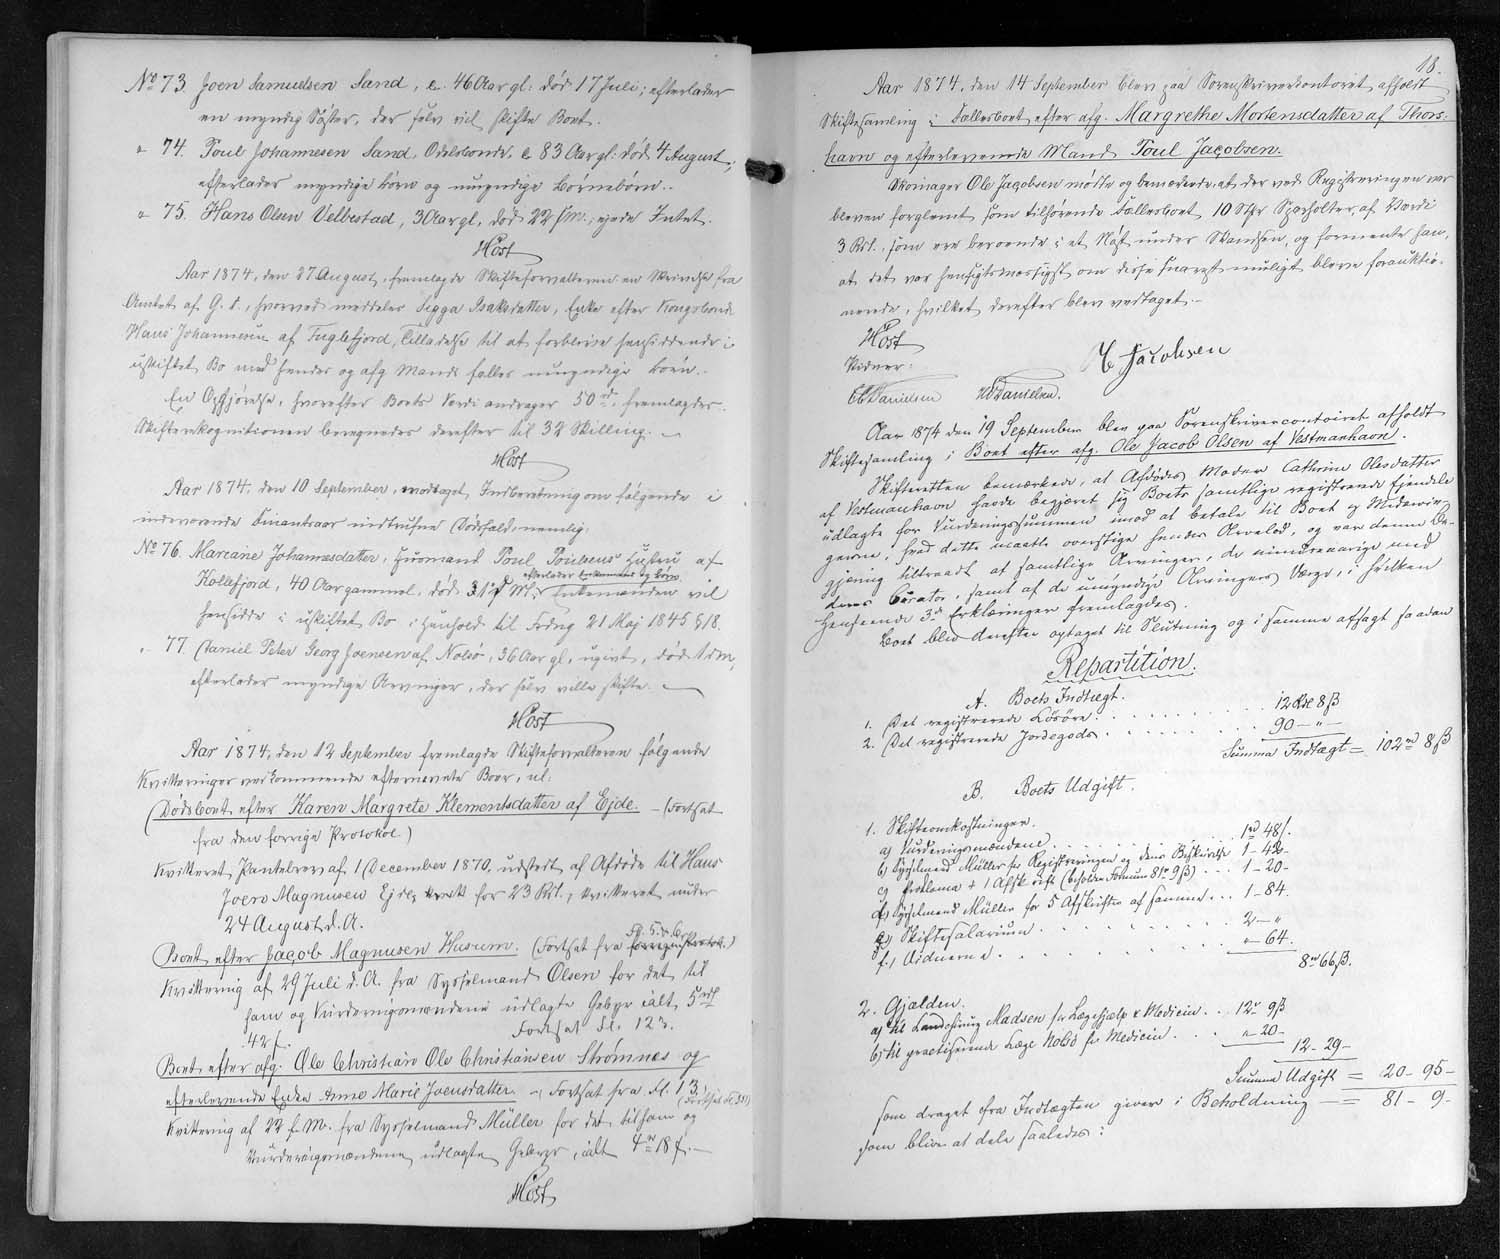 No 73. Joen Samuelsen Sand, c. 46 Aar gl: død 17 Juli; efterlader
en myndig Søster, der selv vil skifte Boet.
" 74. Poul Johannesen Sand, Odelsbonde, c 83 Aar gl: død 4 August;
efterlader myndige Børn og umyndige Børnebørn.
" 75. Hans Olsen Velbestad, 3 Aar gl, død 22 s.m.; ejede Intet.
Høst
Aar 1874, den 27 August, fremlagde Skifteforvalteren en Skrivelse fra
Amtet af G. D., hvorved meddeles Sigga Isaksdatter, Enke efter Kongsbonde
Hans Johannesen af Fuglefjord, Tilladelse til at forblive hensiddende i
uskiftet Bo med hendes og afg Mands fælles umyndige Børn.
En Opgjørelse, hvorefter Boets Værdi andrager 50 rd, fremlagdes.
Skifterekognitionen beregnedes derefter til 32 Skilling.
Høst
Aar 1874, den 10 September, modtaget Indberetning om følgende i
indeværende Finantsaar indtrufne Dødsfald, nemlig:
No 76. Mareane Johannesdatter, Huusmand Poul Poulsens Hustru af
efterlader Enkemand og Børn
Kollefjord, 40 Aar gammel, død 31 d M.; Enkemanden vil
hensidde i uskiftet Bo i Henhold til Frdng 21 Maj 1845 § 18.
" 77. Daniel Peter Georg Joensen af Nolsø, 36 Aar gl, ugivt, død 1 d m,
efterlader myndige Arvinger, der selv ville skifte.
Høst
Aar 1874, den 12 September fremlagde Skifteforvalteren følgende
Kvitteringer vedkommende efternævnte Boer, nl:
(Dødsboet efter Karen Margrete Klementsdatter af Ejde. – (Fortsat
fra den forrige Protokol.)
Kvitteret Pantebrev af 1 December 1870, udstedt af Afdøde til Hans
Joen Magnusen Ejde, for 23 Rd., kvitteret under
24 August d. A.
Fl. 5. & 6.
Boet efter Jacob Magnusen Husum. (Fortsat fra forrige Protok.)
Kvittering af 29 Juli d. A. fra Sysselmand Olsen for det til
ham og Vurderingsmændene udlagte Gebyr ialt 5 rd
42 s. Fortsat Fl. 123.
Boet efter afg. Ole Christian Ole Christiansen Strømnes og
efterlevende Enke Anne Marie Joensdatter. – Fortsat fra Fl. 13.
(Fortsat Fl 35)
Kvittering af 22 f. M. fra Sysselmand Müller for det til ham og
Vurderingsmændene udlagte Gebyr, ialt 4 rd 18 s.
Høst
18.
Aar 1874, den 14 September blev paa Sorenskriverkontoret afholdt
Skiftesamling i Fællesboet efter afg. Margrethe Mortensdatter af Thors-
havn og efterlevende Mand Poul Jacobsen.
Skomager Ole Jacobsen mødte og bemærkede, at der ved Registreringen var
bleven forglemt som tilhørende Fællesboet 10 Stkr Sparholter, af Værdi
3 Rd., som ere beroende i et Nøst under Skandsen, og formente han,
at det var hensigtsmæssigst om disse snarest muligt bleve forauktio-
nerede, hvilket derefter blev vedtaget.
Høst
Vidner: Jacobsen
Danielsen Danielsen.
Aar 1874 den 19 September blev paa Sorenskrivercontoiret afholdt
Skiftesamling i Boet efter afg. Ole Jacob Olsen af Vestmanhavn.
Skifteretten bemærkede, at Afdødes Moder Cathrine Olesdatter
af Vestmanhavn havde begjæret sig Boets samtlige registrerede Ejendele
udlagte for Vurderingssummen imod at betale til Boet og Medarvin-
gerne, hvad dette maatte overstige hendes Arvelod, og var denne Be-
gjæring tiltraadt af samtlige Arvinger, de mindreaarige med
deres Curator, samt af de umyndige Arvingers Værge, i hvilken
Henseende 3de Erklæringer fremlagdes.
Boet blev derefter optaget til Slutning og i samme afsagt saadan
Repartition.
A. Boets Indtægt.
1. Det registrerede Løsøre. . . . . . . . 12 rd 8 ß
2. Det registrerede Jordegods . . . . . . . 90 – " –
Summa Indtægt = 102 rd 8 ß
B. Boets Udgift.
1. Skifteomkostninger.
a) Vurderingsmændene . . . . . . . . 1 rd 48 s.
b) Sysselmand Müller for Registreringen og dens Beskrivelse 1 – 42 –
c) Proklama + 1 Afskrift (betalt Fonnum 81 9 ß) . . . 1 – 20 –
d) Sysselmand Müller for 5 Afskrifter af samme . . 1 – 84.
e) Skiftesalarium . . . . . . . . 2 – "
f.) Vidnerne . . . . . . . . " – 64.
8 rd 66 ß.
2. Gjælden.
a) til Landchirurg Madsen for Lægehjælp & Medicin . . 12 rd 9 ß
b) til practiserende Læge Nolsø for Medicin . . . " – 20 –
12 – 29 –
Summa Udgift = 20 – 95 –
som draget fra Indtægten giver i Beholdning = 81 – 9 –
som bliver at dele saaledes: